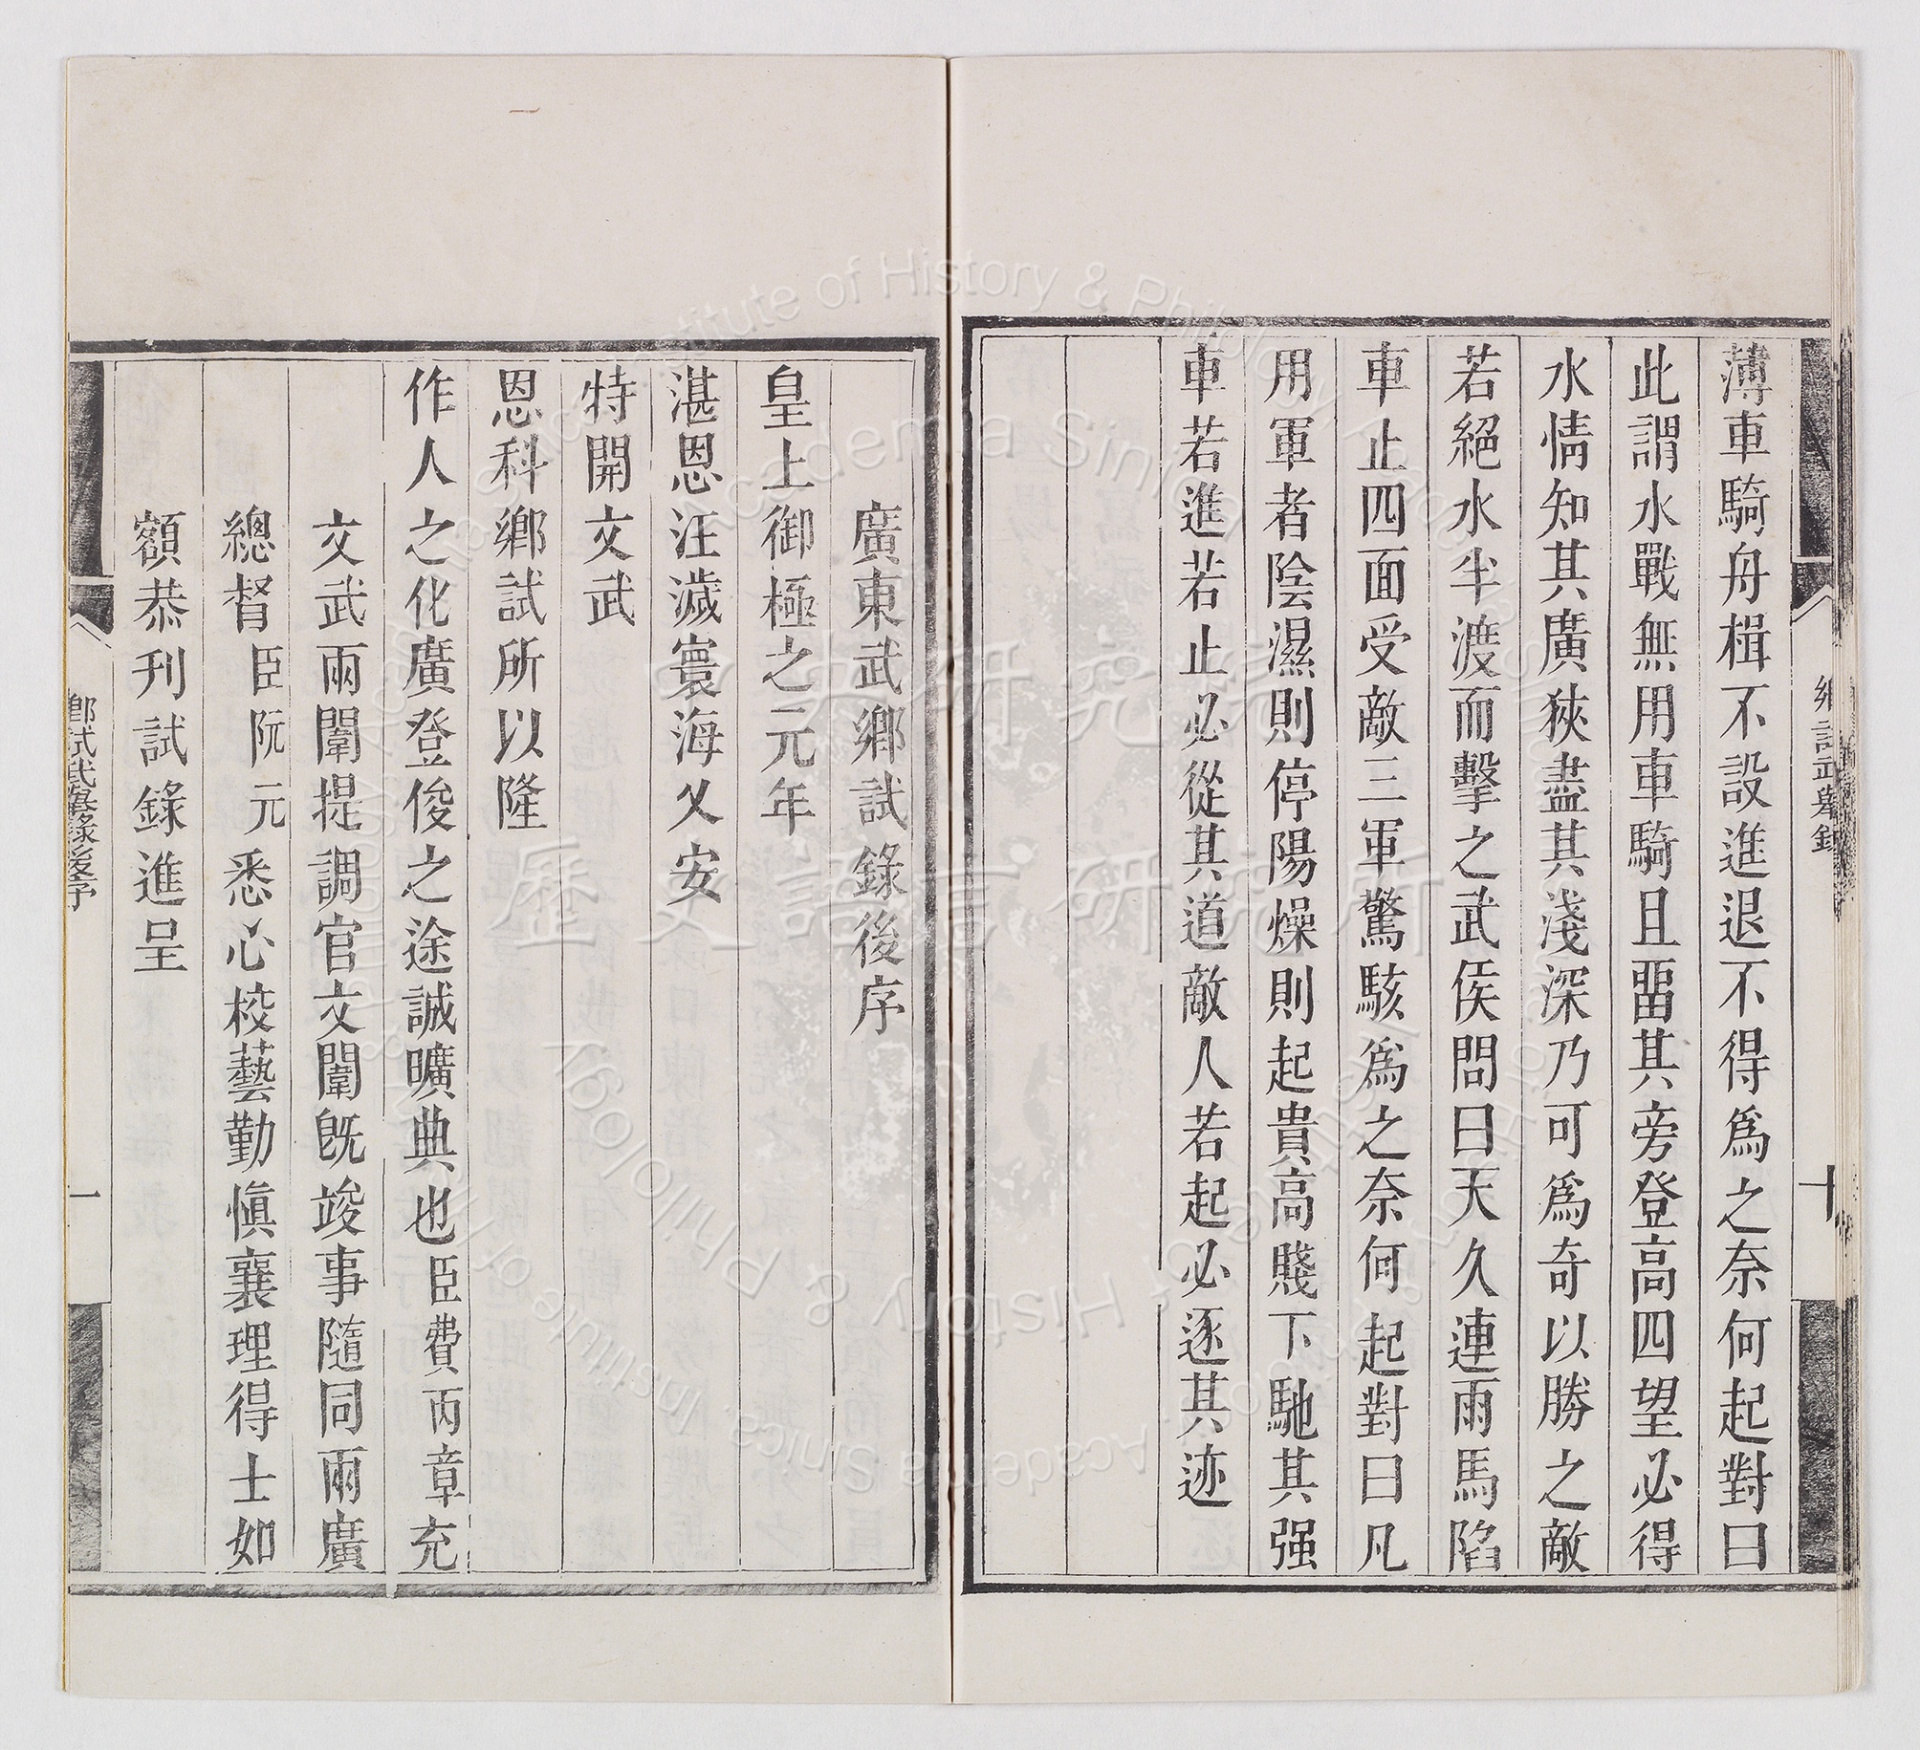 薄車騎舟楫不設進退不得爲之奈何起對曰
此謂水戰無用車騎且畱其旁登高四望必得
水情知其廣狹盡其淺深乃可爲奇以勝之敵
若絕水半渡而擊之武侯問曰天久連雨馬陷
車止四面受敵三軍驚駭爲之奈何起對曰凡
用軍者陰濕則停陽燥則起貴高賤下馳其强
車若進若止必從其道敵人若起必逐其迹
鄉試武舉錄
十
廣東武鄉試錄後序
皇上御極之元年
湛恩汪濊寰海乂安
特開文武
恩科鄉試所以隆
作人之化廣登俊之途誠曠典也臣費丙章充
文武兩闈提調官文闈旣竣事隨同兩廣
總督臣阮元悉心校藝勤愼襄理得士如
額恭刊試錄進呈
鄉試武舉錄後序
一
Academia Sinica
Institute of History & Philology
歷史語言研究所